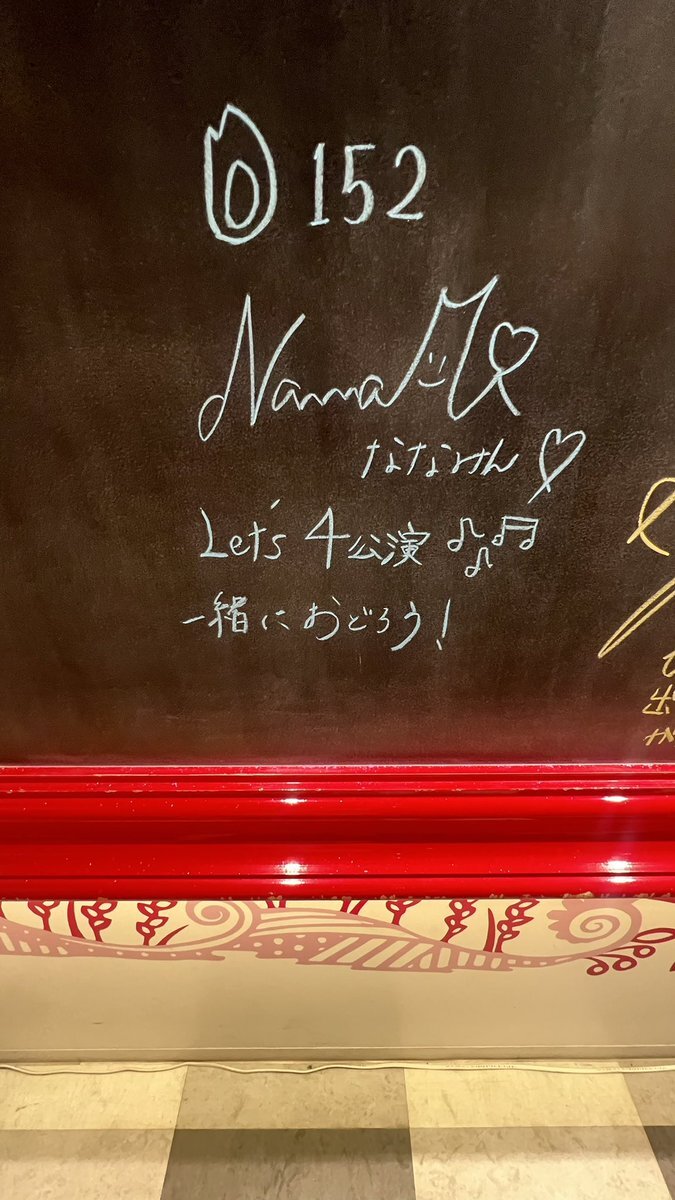 152
ななみん
Let's 4公演
一緒におどろう!